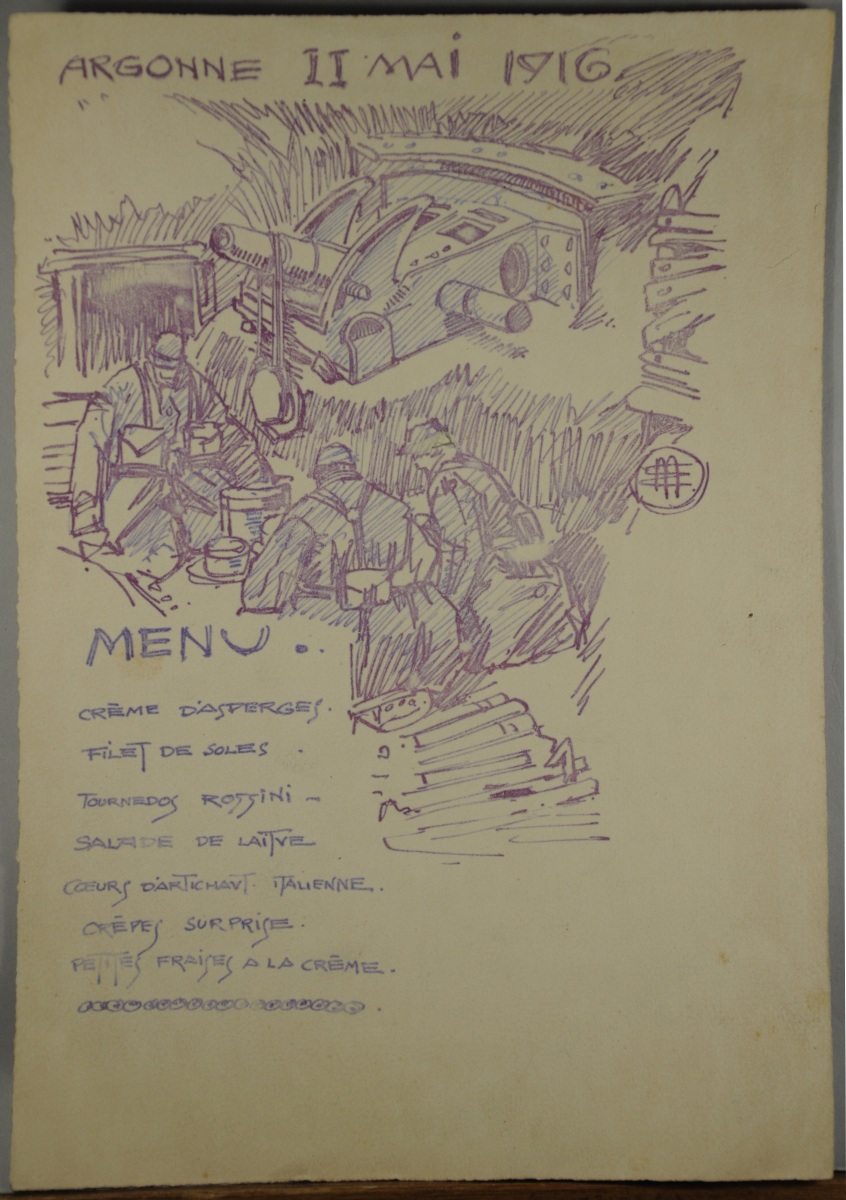 ARGONNE 11 MAI 1916
MENU..
CRÈME D'ASPERGES.
FILET DE SOLES .
TOURNEDOS ROSSINI -
SALADE DE LAITVE
CŒURS D'ARTICHAVT. ITALIENNE.
CRÊPES SURPRISE.
PETITES FRAISES A LA CRÈME.